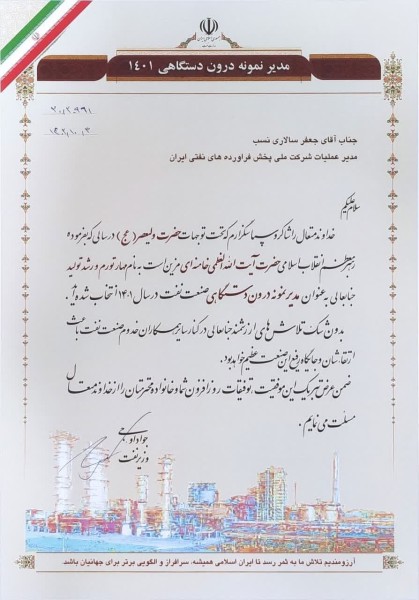 مدیر نمونه درون دستگاهی ۱۴۰۱
جناب آقای جعفر سالاری نسب
مدیر عملیات شرکت ملی پخش فرآورده های نفتی ایران
سلام علیکم
خداوند متعال را شاکر و سپاسگزارم که تحت توجهات حضرت ولیعصر (عج) در سالی که بفرموده
رهبر معظم انقلاب اسلامی حضرت آیت الله العظمی خامنه ای مزین است به نام مهار تورم و رشد تولید
جنابعالی به عنوان مدیر نمونه درون دستگاهی صنعت نفت در سال ۱۴۰۱ انتخاب شده اید.
بدون شک تلاش های ارزشمند جنابعالی در کنار سایر همکاران خدوم صنعت نفت باعث
ارتقاء شان و جایگاه رفیع این صنعت عظیم خواهد بود.
ضمن عرض تبریک این موفقیت، توفیقات روزافزون شما و خانواده محترمتان را از خداوند متعال
مسئلت می نمایم.
جواد اوجی
وزیر نفت
آرزومندیم تلاش ما به ثمر رسد تا ایران اسلامی همیشه، سرافراز و الگویی برتر برای جهانیان باشد.